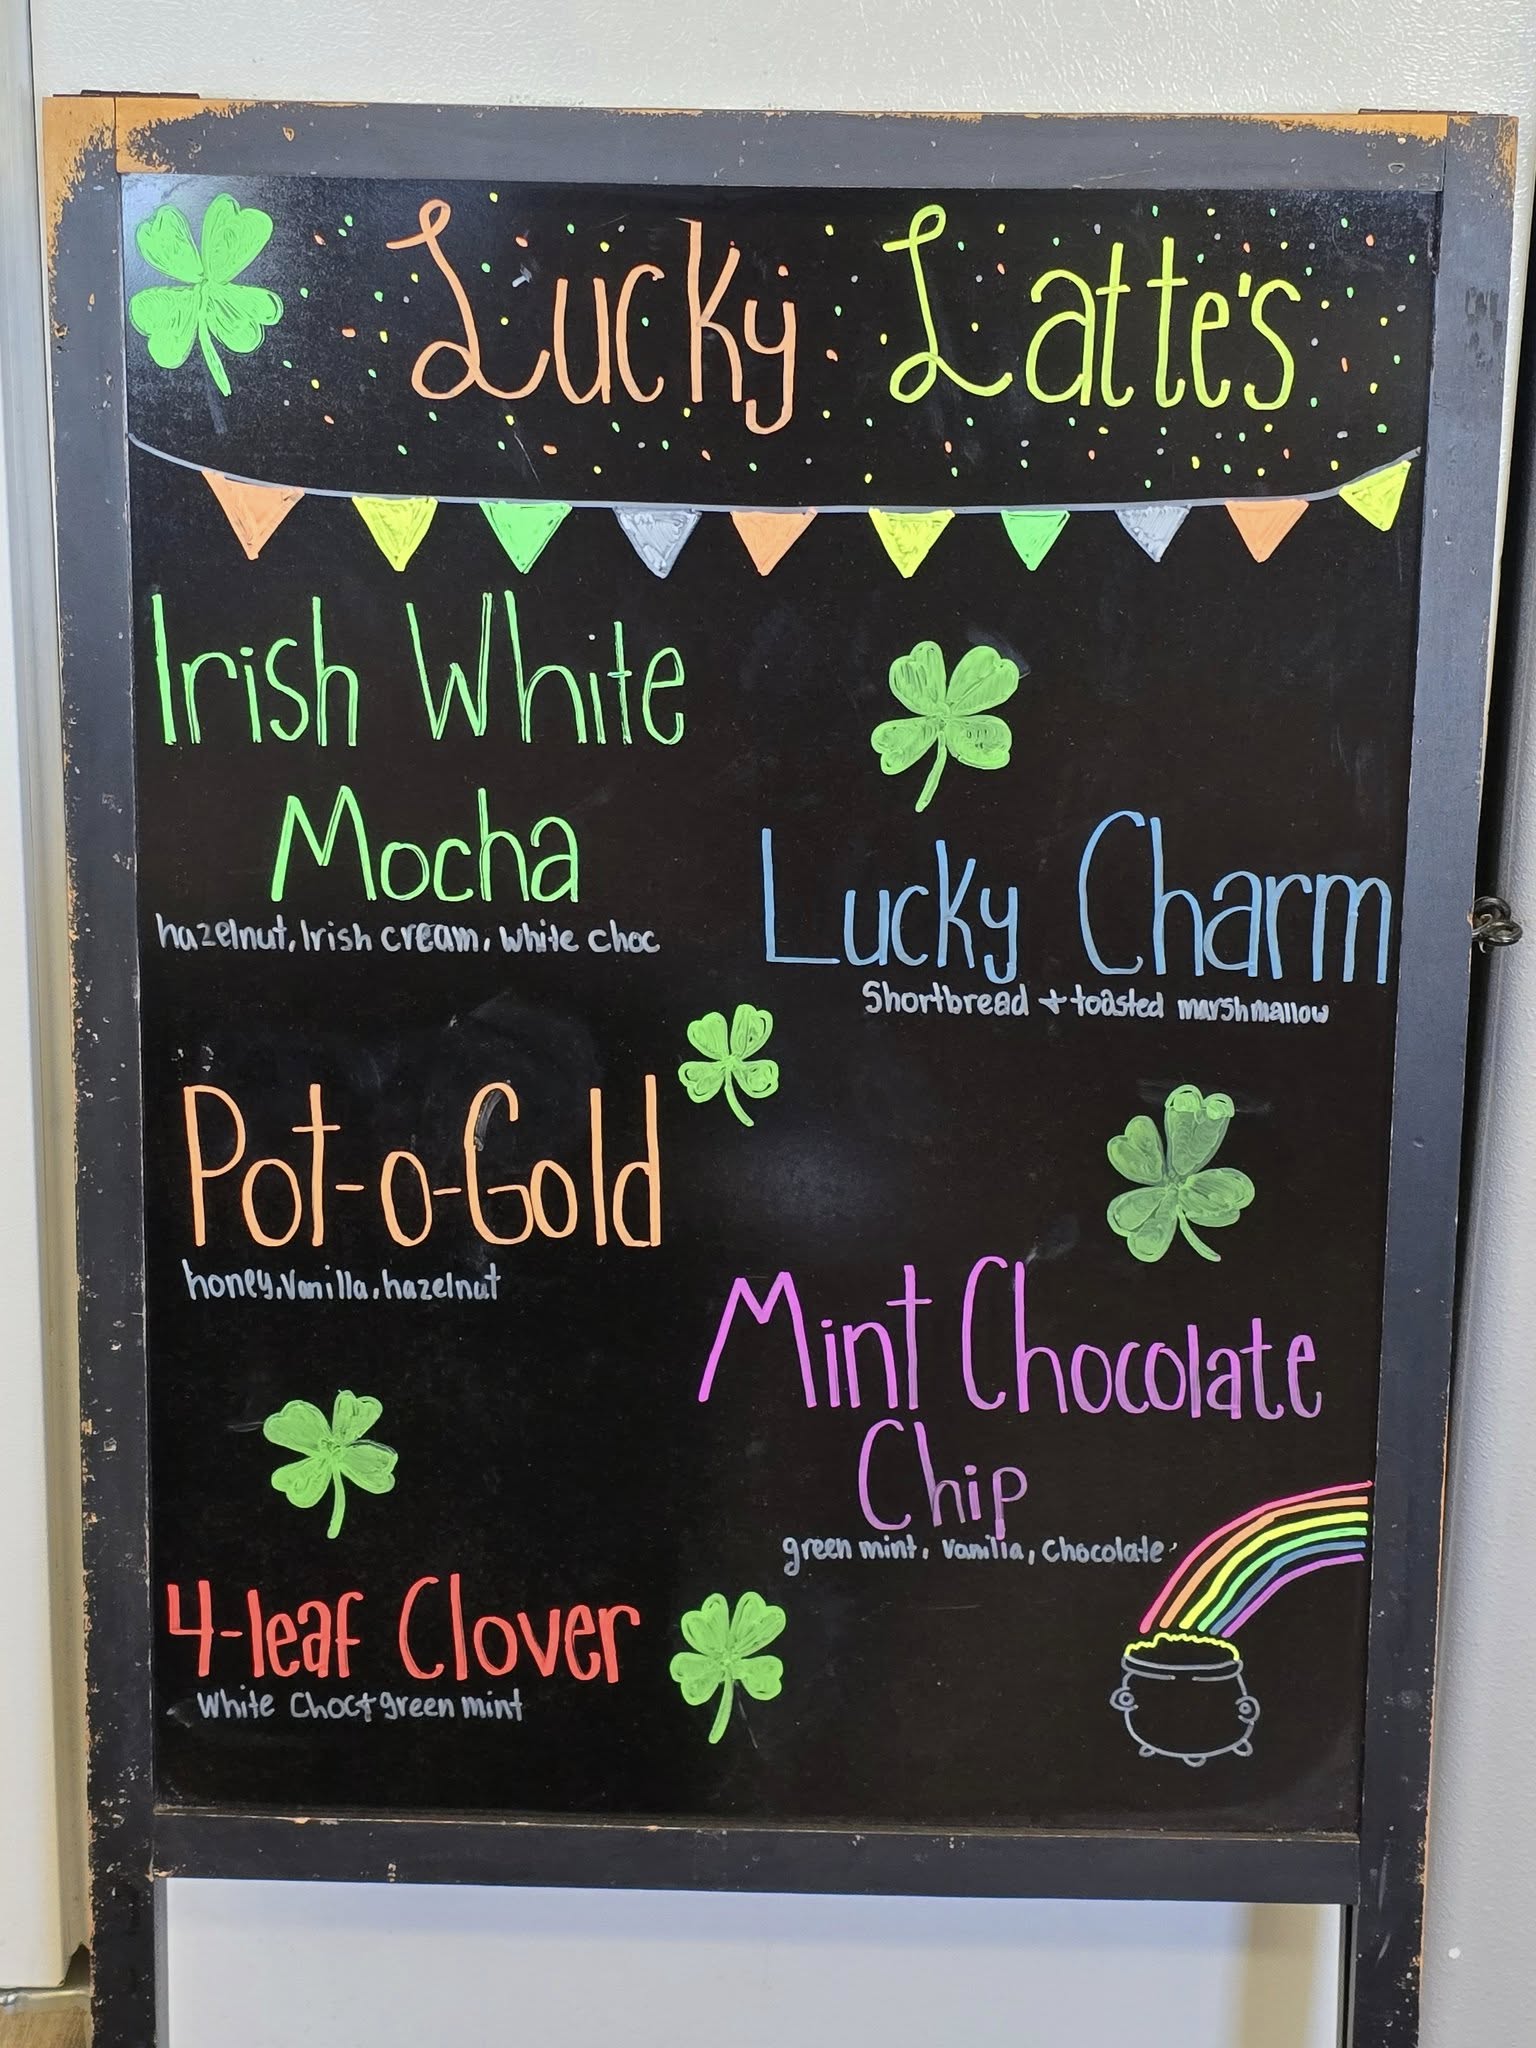 Lucky Latte's
Irish White
Mocha
hazelnut, Irish cream, white choc
Lucky Charm
Shortbread + toasted marshmallow
Pot-o-Gold
honey, vanilla, hazelnut
Mint Chocolate
Chip
green mint, vanilla, chocolate
4-leaf Clover
White Choc + green mint